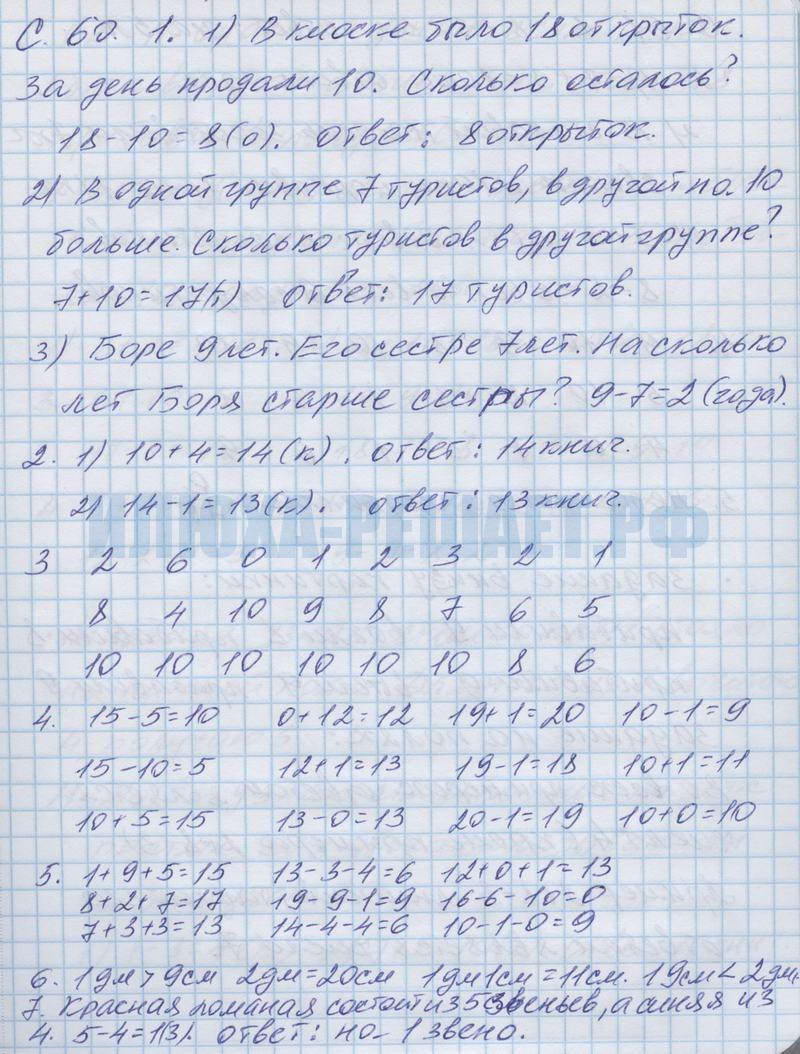 С. 60. 1. 1) В киоске было 18 открыток.
За день продали 10. Сколько осталось?
18-10=8(о). Ответ: 8 открыток.
2) В одной группе 7 туристов, в другой на 10
больше. Сколько туристов в другой группе?
7+10=17(т) Ответ: 17 туристов.
3) Боре 9 лет. Его сестре 7 лет. На сколько
лет Боря старше сестры? 9-7=2(года).
2. 1) 10+4=14(к). Ответ: 14 книг.
2) 14-1=13(к). Ответ: 13 книг.
ИЛЮХА-РЕШАЕТ.РФ
3 2 6 0 1 2 3 2 1
8 4 10 9 8 7 6 5
10 10 10 10 10 10 8 6
4. 15-5=10 0+12=12 19+1=20 10-1=9
15-10=5 12+1=13 19-1=18 10+1=11
10+5=15 13-0=13 20-1=19 10+0=10
5. 1+9+5=15 13-3-4=6 12+0+1=13
8+2+7=17 19-9-1=9 16-6-10=0
7+3+3=13 14-4-4=6 10-1-0=9
6. 1дм>9см 2дм=20см 1дм1см=11см. 19см<2дм.
7. Красная ломаная состоит из 5 звеньев, а синяя из
4. 5-4=1(з). Ответ: на 1 звено.